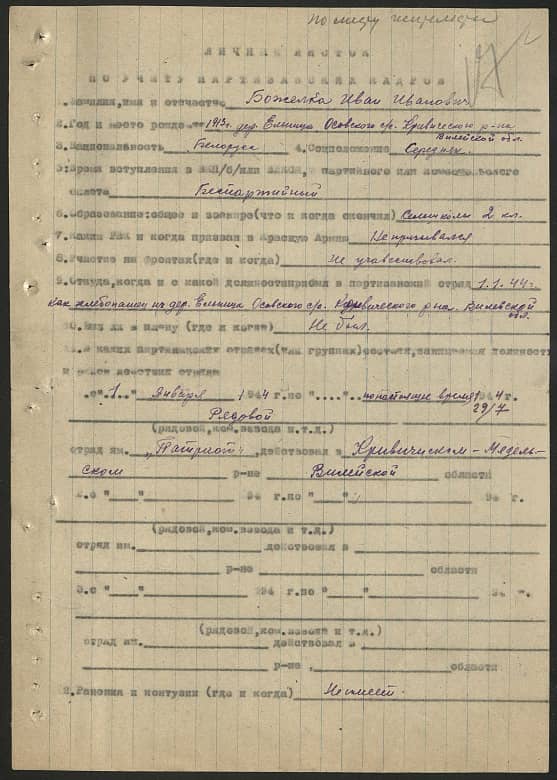 По
ЛИЧНЫЙ ЛИСТОК
ПО УЧЕТУ ПАРТИЗАНСКИХ КАДРОВ
1. Фамилия, имя и отчество Божелка Иван Иванович
2. Год и место рождение 1913г. дер. Ельница Осовского с/с. Кривического р-на
Вилейской обл.
3. Национальность Белорус 4. Соцположение Середняк.
5. Время вступления в ВКП/б/или ВЛКСМ, партийного или комсомольского
билета Беспартийный
6. Образование: общее и военное (что и когда окончил) Сельшколы 2 кл.
7. Каким РВК и когда призван в Красную Армию Не призывался
8. Участие на фронтах (где и когда) Не участвовал.
9. Откуда, когда и с какой должности прибыл в партизанский отряд 1.1.44г.
как хлебопашец из дер. Ельница Осовского с/с. Кривического р-на. Вилейской
обл.
10. Был ли в плену (где и когда) Не был.
11. В каких партизанских отрядах (или группах) состоял, занимаемая должность
и район действия отряда
1. с "1" января 1944 г. по "...." по настоящие время 1944 г.
29/7
Рядовой
(рядовой, ком. взвода и т.д.)
отряд им. "Патриот", действовал в Кривичском – Мядель-
ском р-не Вилейской области
2. с " " 194 г. по " " 194 г.
(рядовой, ком. взвода и т.д.)
отряд им. действовал в
р-не области
3. с " " 194 г. по " " 194 г.
(рядовой, ком. взвода и т.д.)
отряд им. действовал в
р-не, области
12. Ранения и контузии (где и когда) Не имеет.